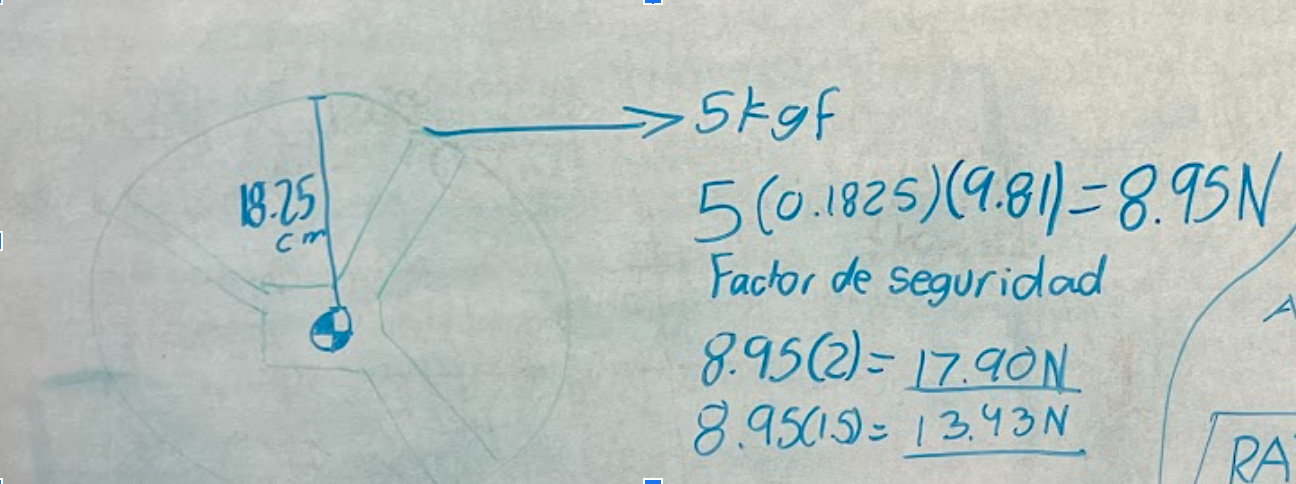 5kgf
18.25
cm
5(0.1825)(9.81)=8.95N
Factor de seguridad
8.95(2)= 17.90N
8.95(1.5)= 13.43N
A
RA